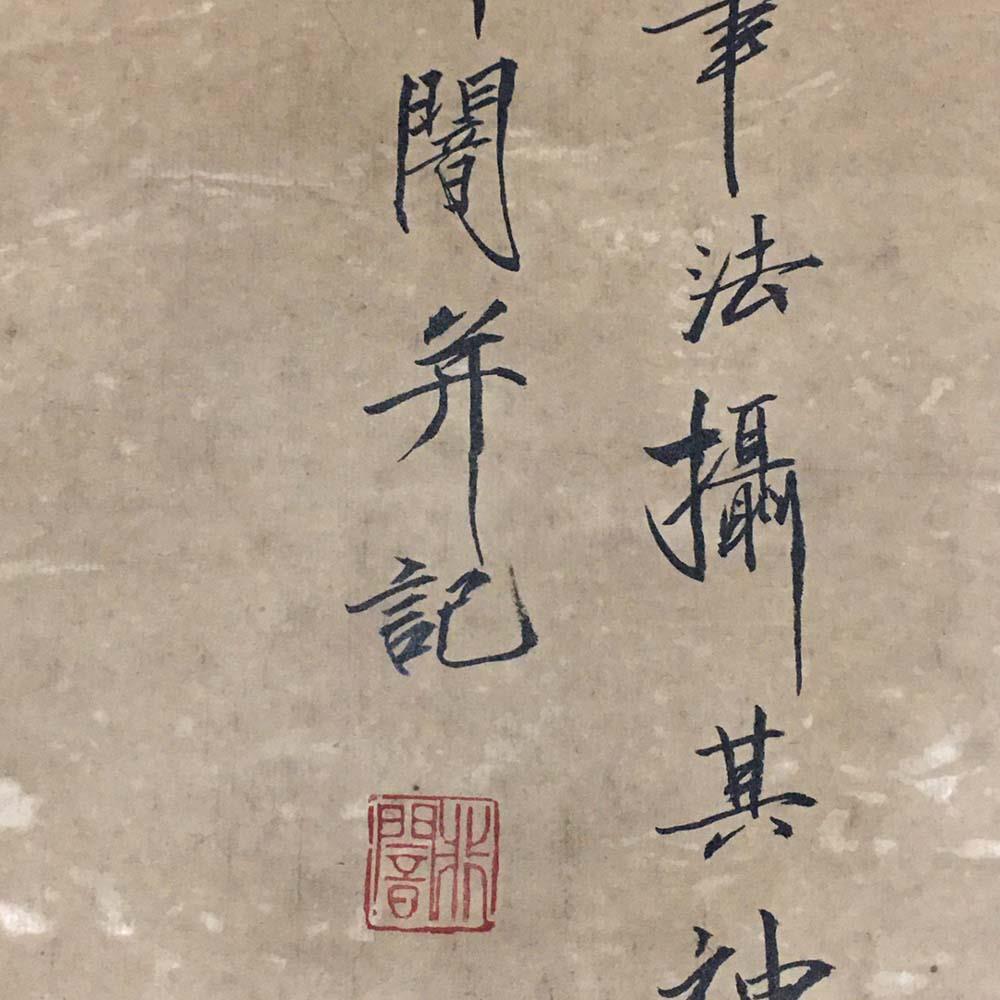 筆法攝其神
闇并記
闇